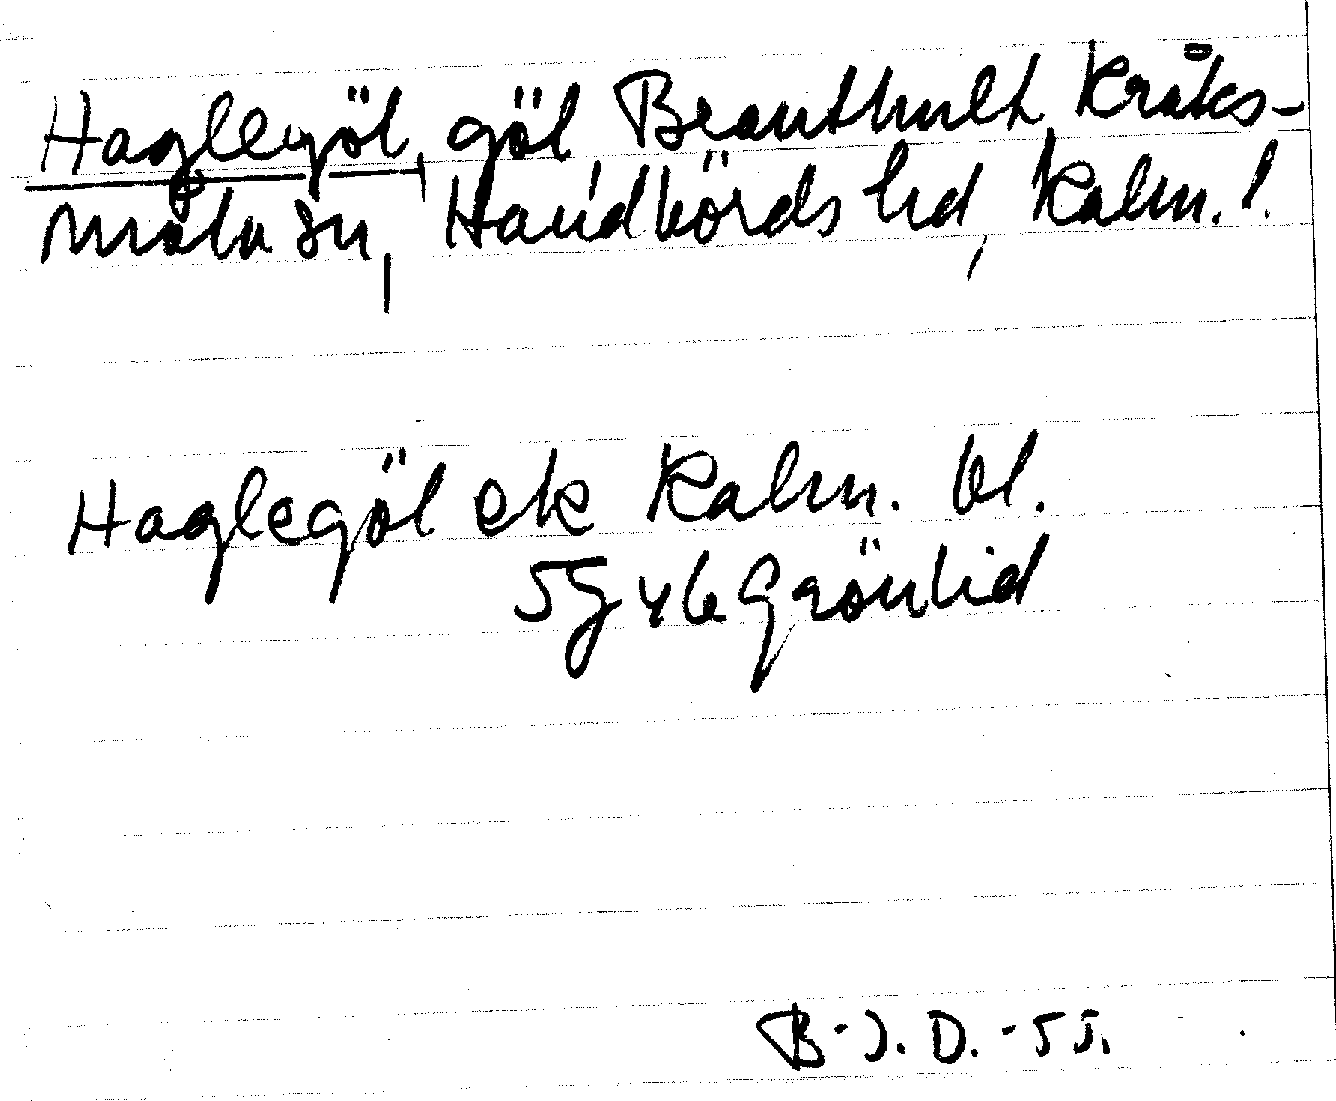 Haglegöl, göl, Branthult, Kråks-
måla sn, Handbörds hd, Kalm. l.
Haglegöl ek Kalm. bl.
5G 4b Grönlid
B-J. D. -55.